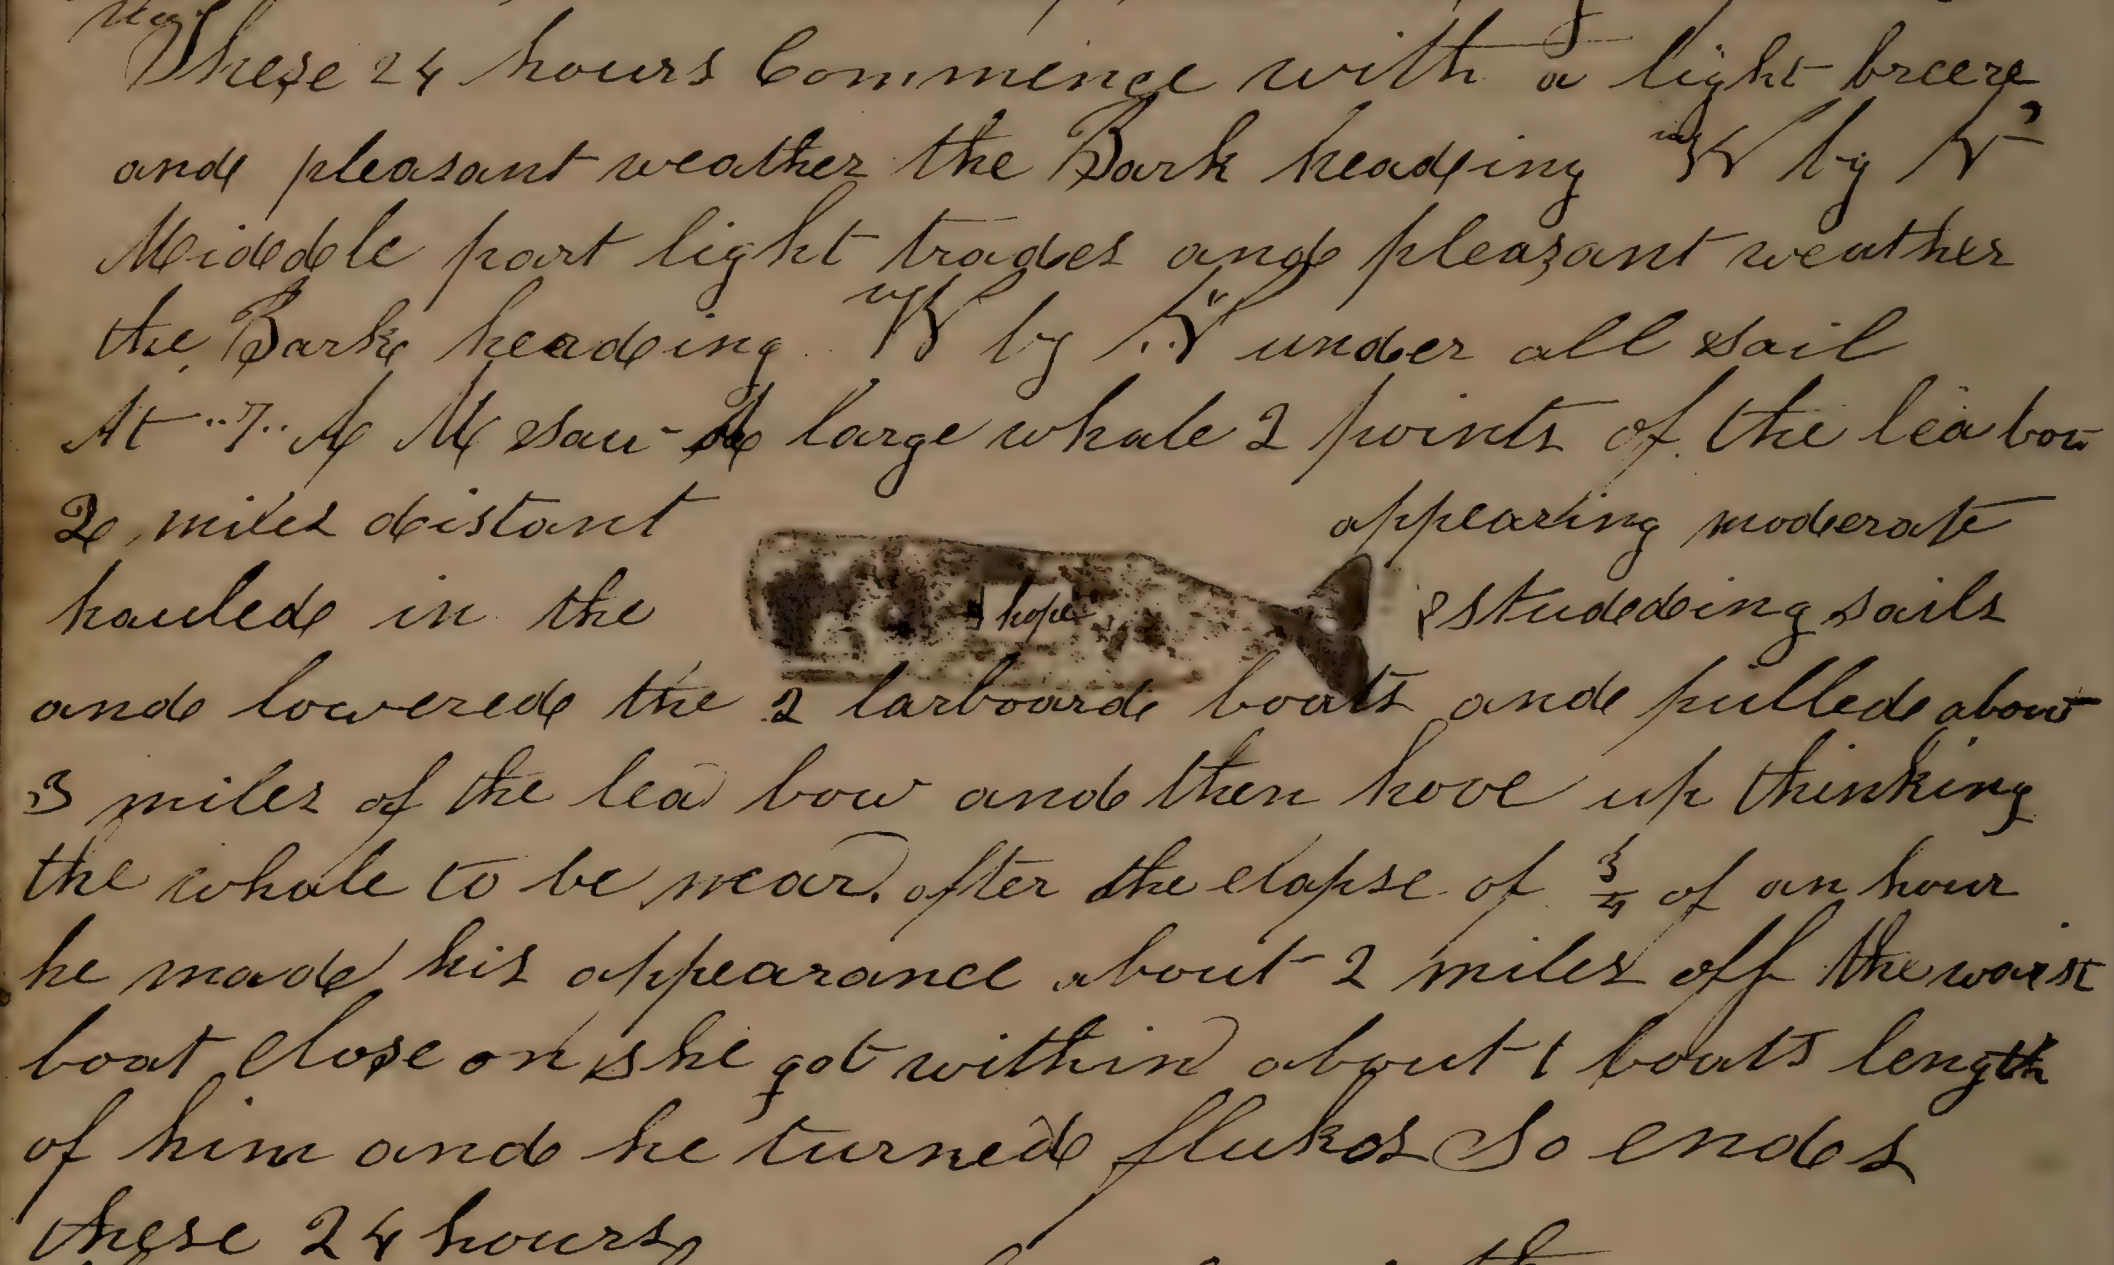 These 24 hours Commence with a light breeze
and pleasant weather the Bark heading W by N
Middle part light trades and pleasant weather
the Bark heading W by N under all sail
At 7 A M saw A large whale 2 points of the lea bow
2 miles distant appearing moderate
hauled in the studding sails
hope
and lowered the 2 larboard boats and pulled about
3 miles of the lea bow and then hove up thinking
the whale to be near. after the elapse of 3/4 of an hour
he made his appearance about 2 miles off the waist
boat close on she got within about 1 boats length
of him and he turned flukes So ends
these 24 hours